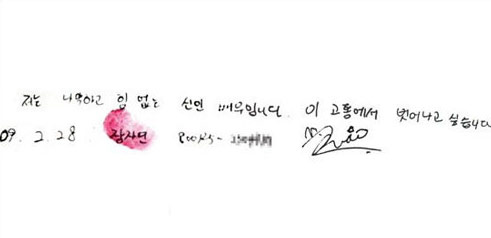 저는 나약하고 힘 없는 신인 배우입니다. 이 고통에서 벗어나고 싶습니다
09. 2. 28 장자연